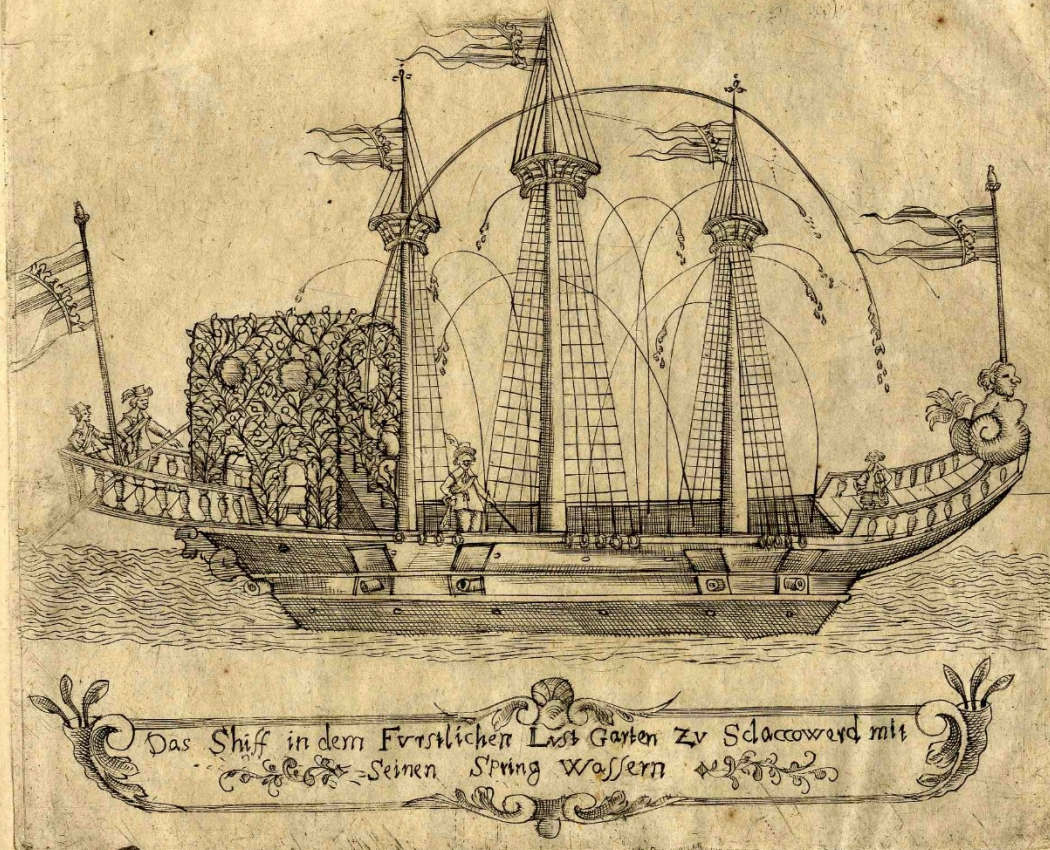 Das Shiff in dem Fvrstlichen Lvst Garten zv Sclaccowerd mit
Seinen Spring Wassern